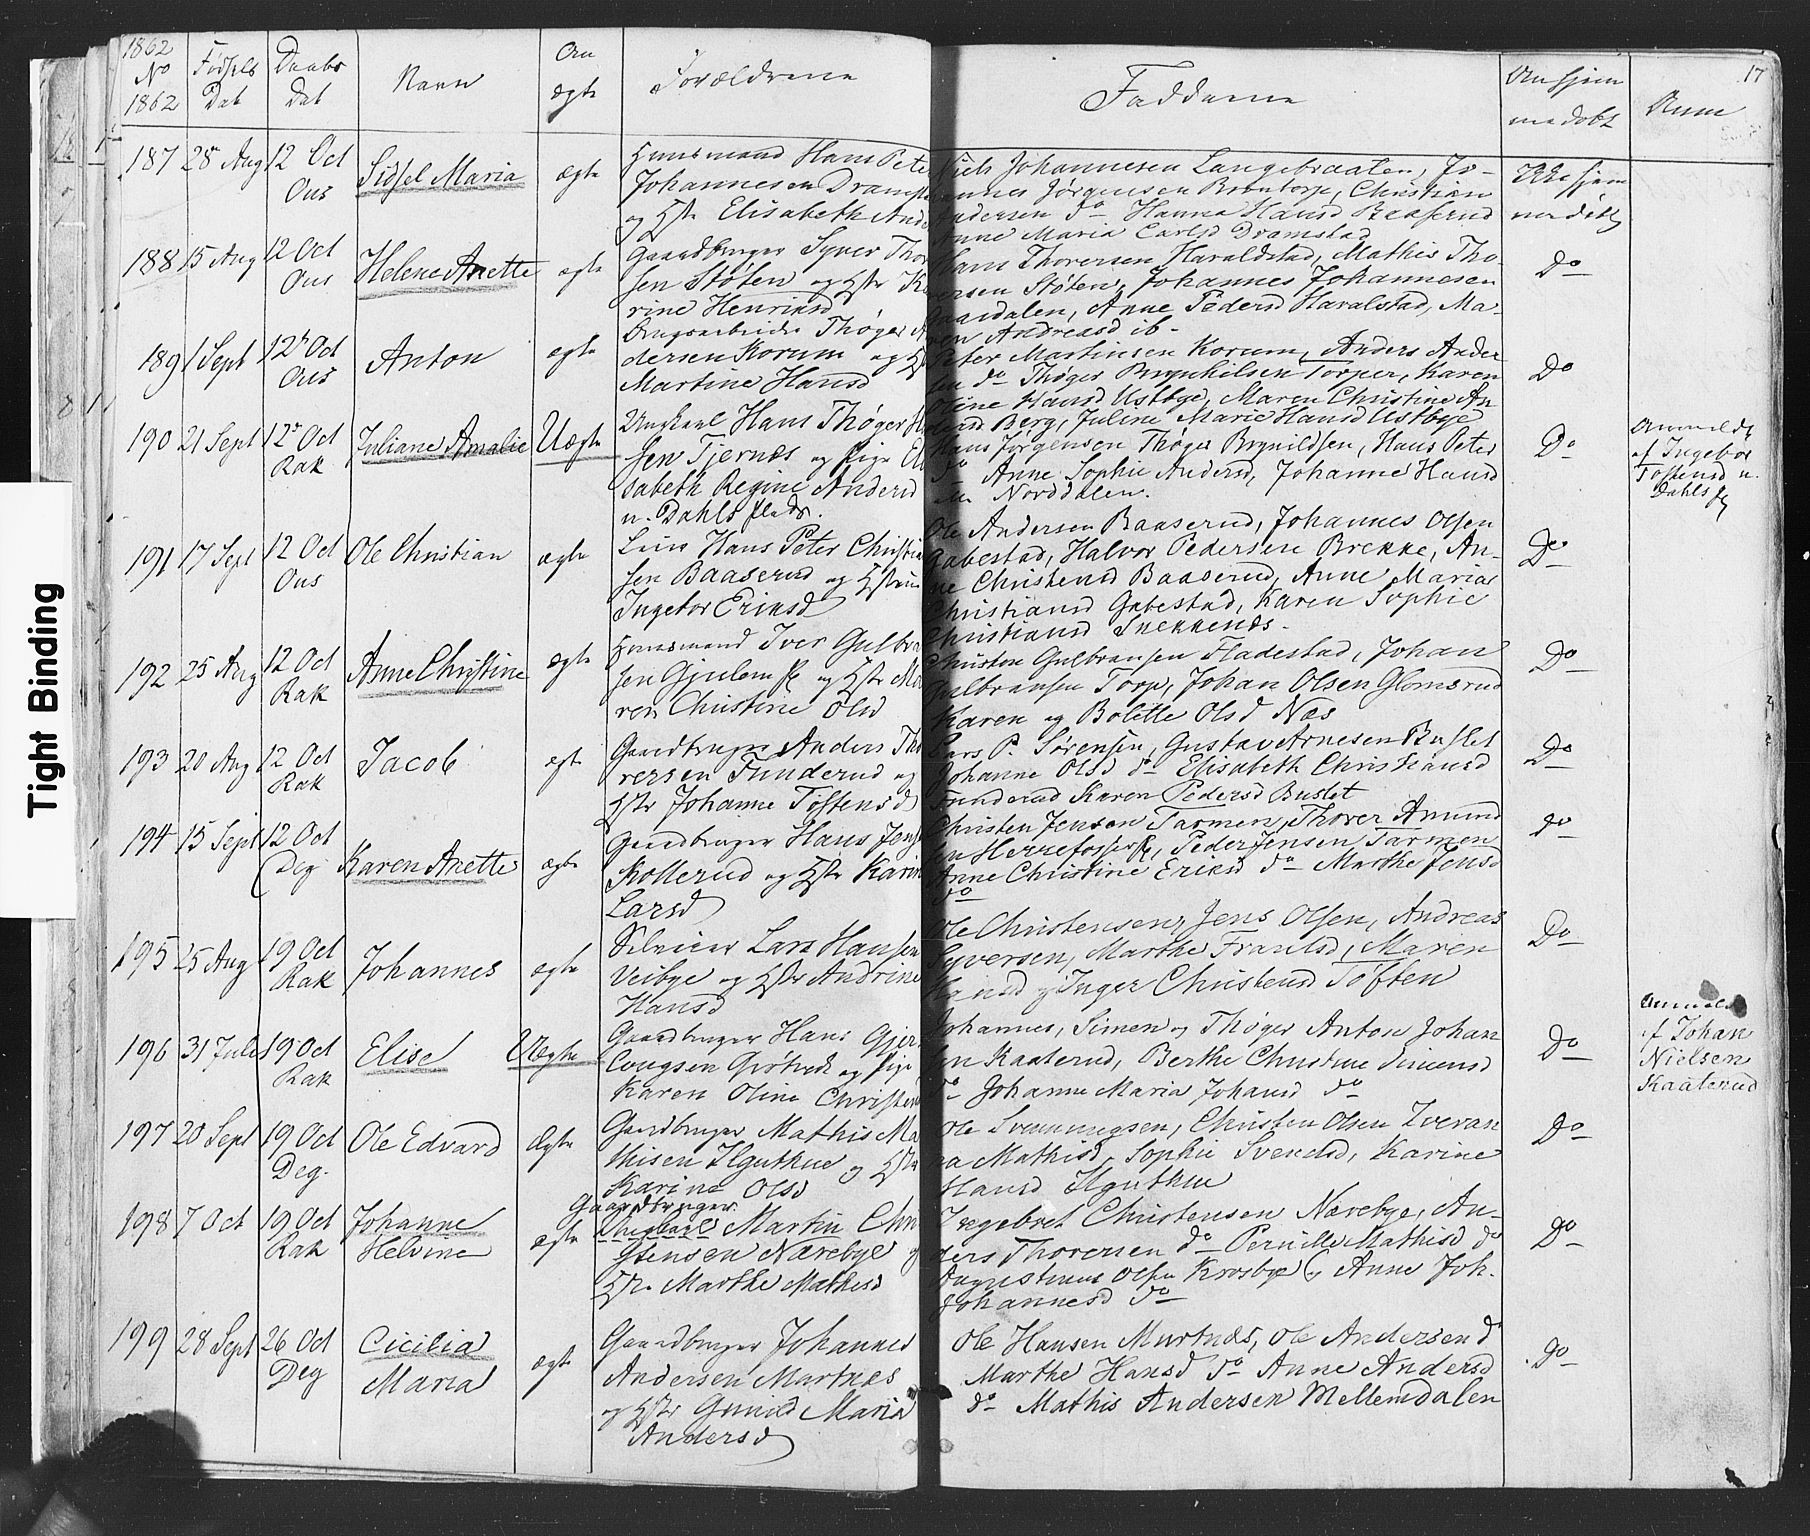 1862
No
1862
Fødsels
Dat
Daabs
Dat
Navn
Om
ægte
Forældrene
Faddere
Om hjem
medøbt
Anm
17
187 28 Aug 12 Oct
Ous
Sidsel Maria
ægte
Huusmand Hans Peter
Johannesen Dramst
og Hstr Elisabeth Ande
Niels Johannesen Langebraaten, Jo-
annes Jørgensen Bromtorp, Christian
Andersen do Hanna Hansd Baaserud
Anne Maria Carlsd Dramstad
Ikke hjem
med
188 15 Aug 12 Oct
Ous
Helene Anette
ægte
Gaardbruger Syver Thor
sen Støten og Hstr Ka
rine Henriksd
Hans Thoresen Haraldstad, Mathis Tho-
ersen Støten, Johannes Johannesen
Gaardalen, Anne Pedersd Haralstad, Ma-
ren Andreasd ib-
Do
189 1 Sept 12te Oct
Ous
Anton
ægte
Brugsarbeider Thøger A
dersen Korum og Hst
Martine Hansd
Peter Martinsen Korum, Anders Ander
sen do Thøger Brynhilsen Torper, Karen
Oline Hansd Ustbye, Maren Christine An
dersd Berg, Juline Marie Hansd Ustbye
Do
190 21 Sept 12te Oct
Rak
Juliane Amalie
Uægte
Ungkarl Hans Thøger H
sen Tjernæs og Pige El
sabeth Regine Andersd
u. Dahls Plads.
Hans Jørgensen Thøger Brynildsen, Hans Peter
do Anne Sophie Andersd, Johanne Hansd
Norddalen.
Do
Anmeldt
af Ingebor
Tostensd u.
Dahls
191 17 Sept 12 Oct
Ous
Ole Christian
ægte
Leier Hans Peter Christia
sen Baaserud og Hstru
Ingebor Eriksd
Ole Andersen Baaserud, Johannes Olsen
Gabestad, Halvor Pedersen Brekke, An-
ne Christensd Baaserud, Anne Maria
Christiansd Gabestad, Karen Sophie
Christiansd Snekkenæs.
Do
192 25 Aug 12 Oct
Rak
Anne Christine
ægte
Huusmand Iver Gulbra
sen Gjulem og Hstr Ma
ren Christine Olsd
Christen Gulbransen Fladestad, Johan
Gulbransen Torp, Johan Olsen Glomsrud
Karen og Bolette Olsd Næs
Do
193 20 Aug 12 Oct
Rak
Jacob
egt
Gaardbruger Anders Tho
rersen Funderud og
Hstr Johanne Tostensd
Lars P. Sørensen, Gustav Arnesen Buslet
Johanne Olsd do Elisabeth Christiansd
Funderud Karen Pedersd Buslet
Do
194 15 Sept 12 Oct
Deg
Karen Anette
ægte
Gaardbruger Hans Jens
Kollerud og Hstr Karin
Larsd
Christen Jensen Tarmen, Thorer Amund
sen Herrefosser, Peder Jensen Tarmen
Anne Christine Eriksd do Marthe Jensd
do
Do
195 25 Aug 19 Oct
Rak
Johannes
ægte
Selveier Lars Hansen
Veibye og Hstr Andrine
Hansd
Ole Christensen, Jens Olsen, Andreas
Syversen, Marthe Frantsd, Maren
Hansd og Inger Christensd Toften
Do
196 31 Juli 19 Oct
Rak
Elise
Uægte
Gaardbruger Hans Gjer
Longsen Grøtvedt og Pige
Karen Oline Christens
Johannes, Simen og Thøger Anton Johan
sen Kaaterud, Berthe Christine Simensd
do Johanne Maria Johansd do
Do
Anmeldt
af Johan
Nielsen
Kaaterud
197 20 Sept 19 Oct
Deg.
Ole Edvard
Ægte
Gaardbruger Mathis Ma
thisen Ilguthue og Hstr
Karine Olsd
Ole Svenningsen, Christen Olsen Iveran
na Mathisd, Sophie Svendsd, Karine
Hansd Ilguthue
Do
198 7 Oct 19 Oct
Rak
Johanne
Helvine
ægte
Gaardbruger
Ungkarl Martin Chri
stensen Nærebye og
Hstr Marthe Mathisd
Ingebret Christensen Nærebye, An-
ders Thoresen do Pernille Mathisd do
Augustinus Olsen Krosbye, Anne Joh.
Johannesd do
Do
199 28 Sept 26 Oct
Deg
Cicilia
Maria
ægte
Gaardbruger Johannes
Andersen Martnæs
og Hstr Gunild Maria
Andersd
Ole Hansen Murtnæs, Ole Andersen do
Marthe Hansd do Anne Andersd
do Mathis Andersen Mellemdalen
Do
Tight Binding